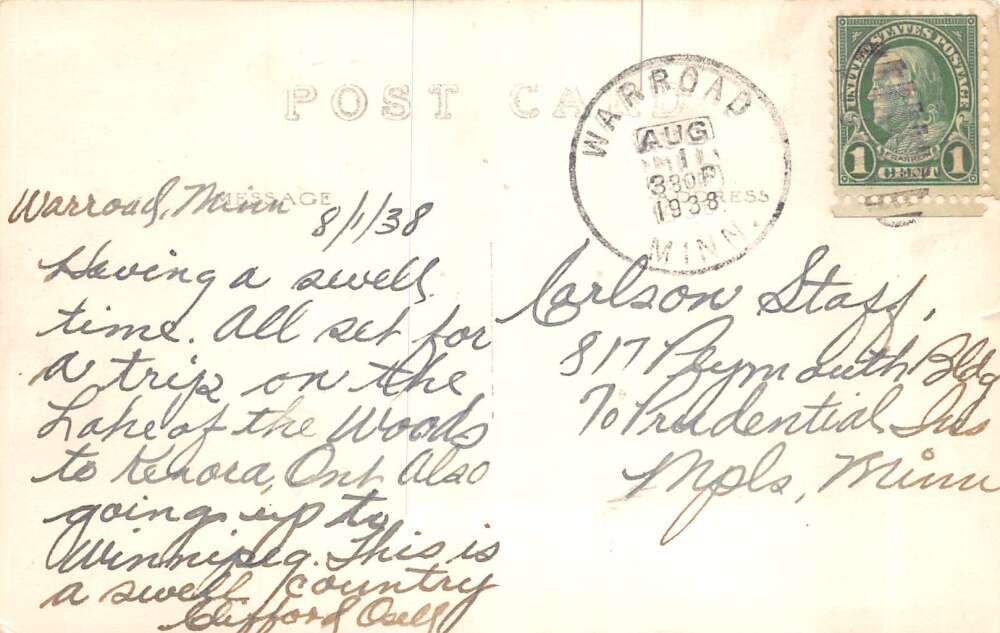 POST CARD
WARROAD
AUG
11
330P
1938
MINN.
UNITED STATES POSTAGE
FRANKLIN
1 CENT 1
MESSAGE
Warroad, Minn
8/1/38
Having a swell
time. All set for
a trip on the
Lake of the Woods
to Kenora, Ont Also
going up to
Winnipeg. This is
a swell country
Clifford
Carlson Staff,
817 Plymouth Bldg
% Prudential Ins
Mpls, Minn